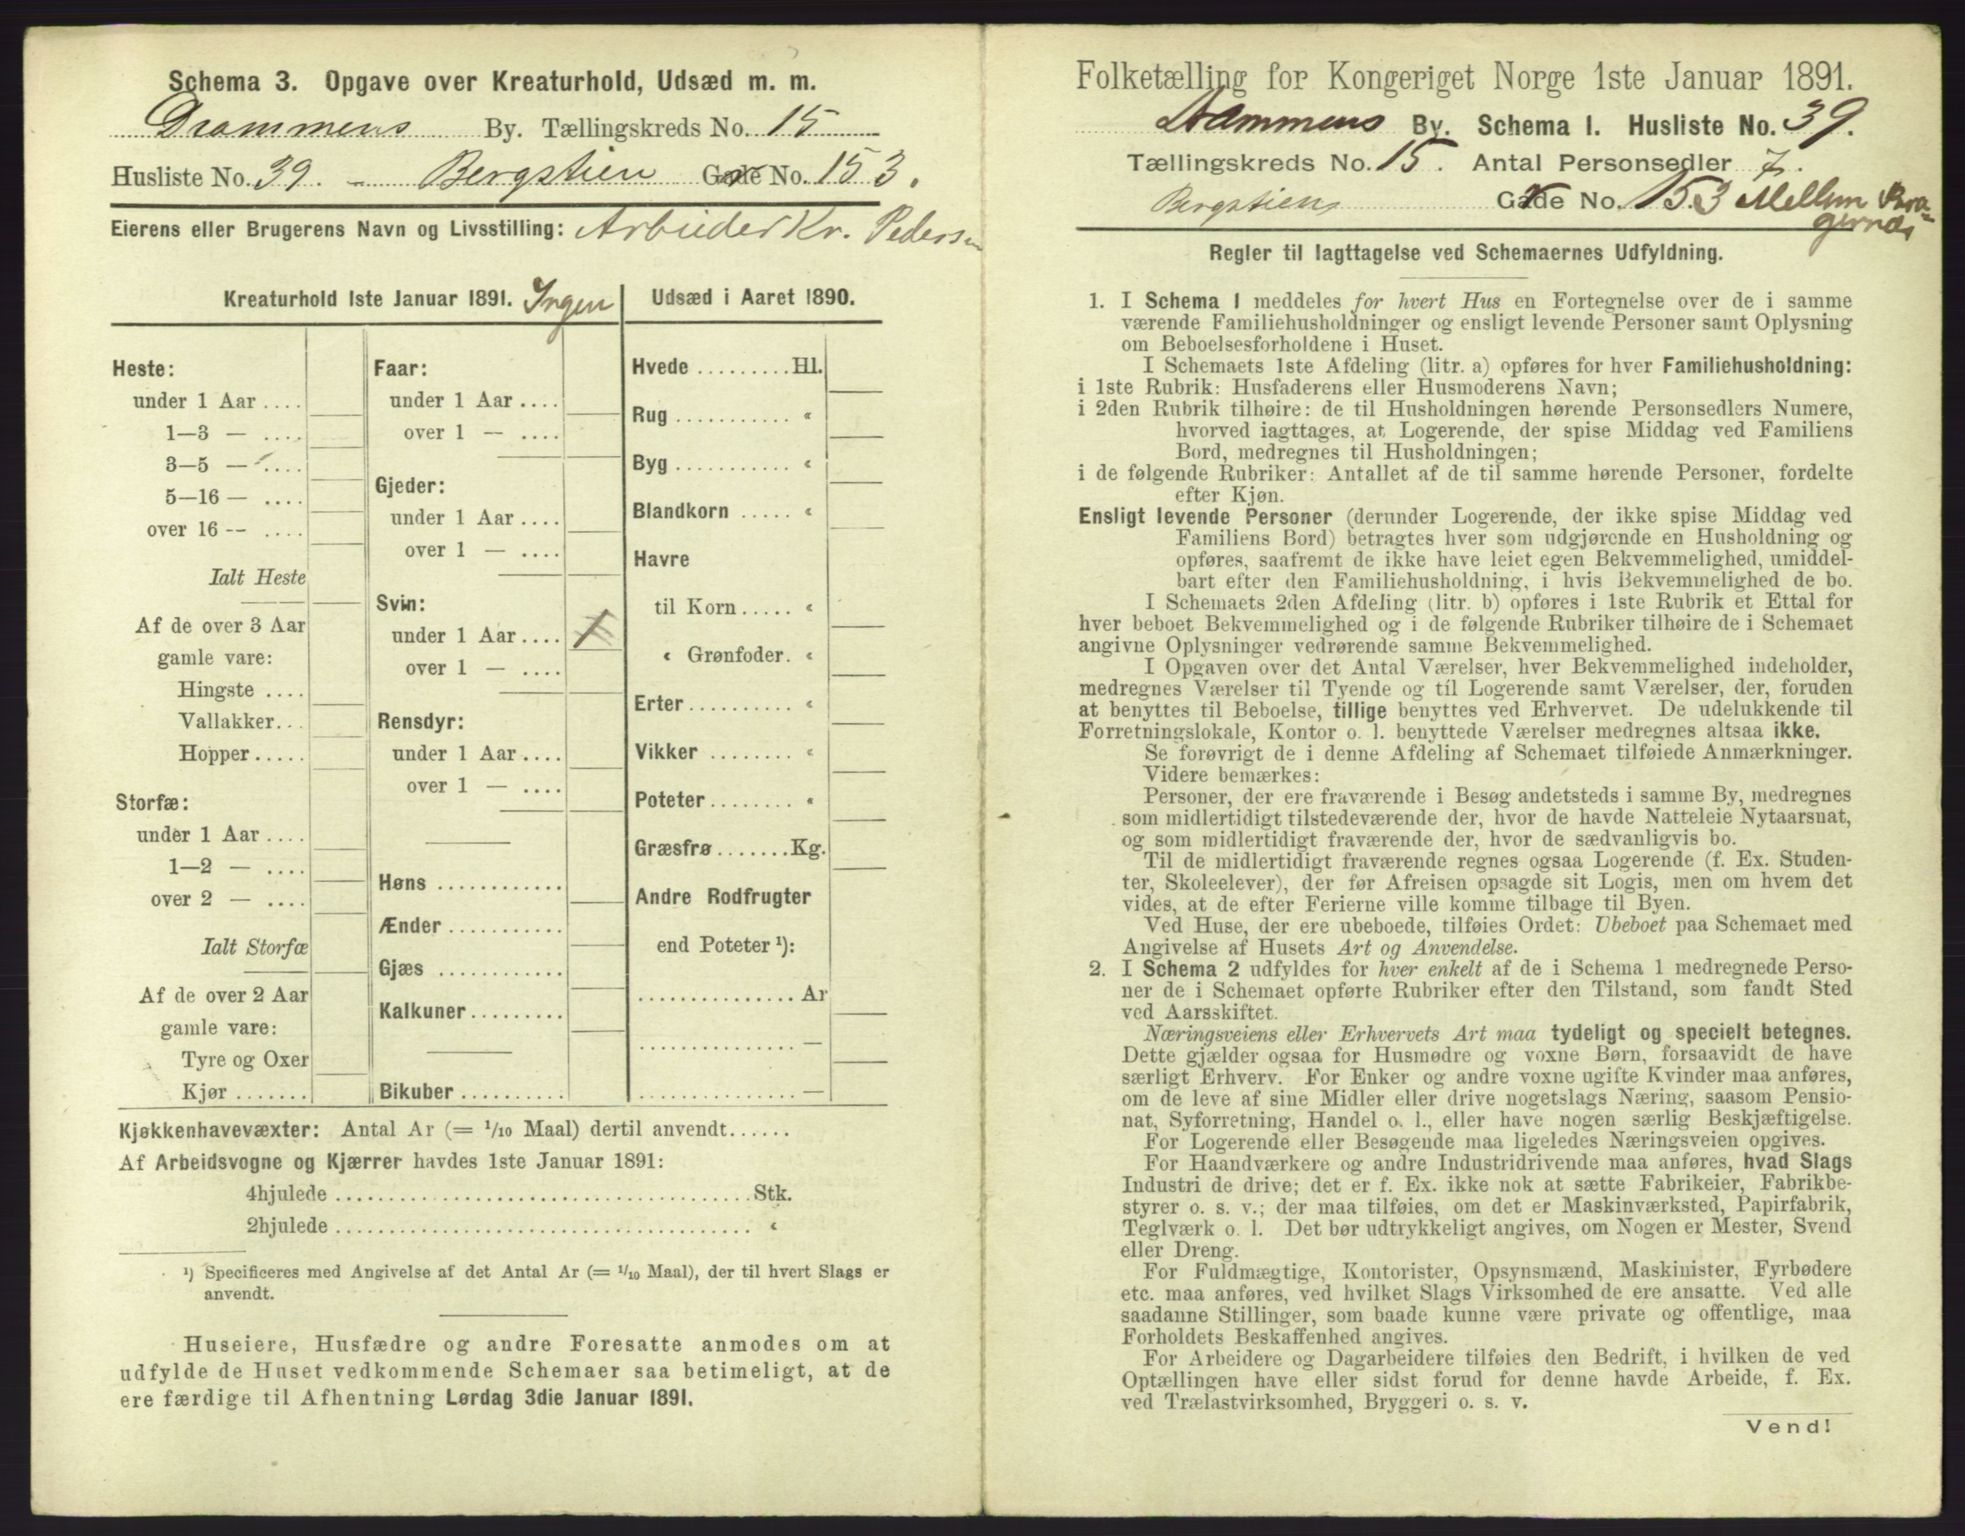 Schema 3. Opgave over Kreaturhold, Udsæd m. m.
Drammens By. Tællingskreds No. 15
Husliste No. 39. - Bergstien Gade No. 153.
Eierens eller Brugerens Navn og Livsstilling: Arbeider Kr. Pedersen
Kreaturhold 1ste Januar 1891. Ingen
Heste:
under 1 Aar ....
1—3 — ....
3—5 — ....
5—16 — ....
over 16 -- ....
Ialt Heste
Af de over 3 Aar
gamle vare:
Hingste ....
Vallakker...
Hopper.....
Storfæ:
under 1 Aar ....
1—2 — ....
over 2 — ....
Ialt Storfæ
Af de over 2 Aar
gamle vare:
Tyre og Oxer
Kjør .......
Faar:
under 1 Aar ....
over 1 — ....
Gjeder:
under 1 Aar ....
over 1 — ....
Svin:
under 1 Aar .... 1
over 1 — ....
Rensdyr:
under 1 Aar ....
over 1 — ....
Høns ............
Ænder ...........
Gjæs ............
Kalkuner.........
Bikuber ..........
Udsæd i Aaret 1890.
Hvede .........Hl.
Rug ........... «
Byg ........... «
Blandkorn ..... «
Havre
til Korn..... «
« Grønfoder. «
Erter.......... «
Vikker ........ «
Poteter........ «
Græsfrø .......Kg.
Andre Rodfrugter
end Poteter ¹):
...............Ar
............... —
............... —
Kjøkkenhavevæxter: Antal Ar (= 1/10 Maal) dertil anvendt......
Af Arbeidsvogne og Kjærrer havdes 1ste Januar 1891:
4hjulede ........................................Stk.
2hjulede ........................................ «
¹) Specificeres med Angivelse af det Antal Ar (= 1/10 Maal), der til hvert Slags er
anvendt.
Huseiere, Husfædre og andre Foresatte anmodes om at
udfylde de Huset vedkommende Schemaer saa betimeligt, at de
ere færdige til Afhentning Lørdag 3die Januar 1891.
Folketælling for Kongeriget Norge 1ste Januar 1891.
Drammens By. Schema I. Husliste No. 39.
Tællingskreds No. 15. Antal Personsedler 7.
Bergstiens Gade No. 153 Mellem Bra-
gernæs
Regler til Iagttagelse ved Schemaernes Udfyldning.
1. I Schema I meddeles for hvert Hus en Fortegnelse over de i samme
værende Familiehusholdninger og ensligt levende Personer samt Oplysning
om Beboelsesforholdene i Huset.
I Schemaets 1ste Afdeling (litr. a) opføres for hver Familiehusholdning:
i 1ste Rubrik: Husfaderens eller Husmoderens Navn;
i 2den Rubrik tilhøire: de til Husholdningen hørende Personsedlers Numere,
hvorved iagttages, at Logerende, der spise Middag ved Familiens
Bord, medregnes til Husholdningen;
i de følgende Rubriker: Antallet af de til samme hørende Personer, fordelte
efter Kjøn.
Ensligt levende Personer (derunder Logerende, der ikke spise Middag ved
Familiens Bord) betragtes hver som udgjørende en Husholdning og
opføres, saafremt de ikke have leiet egen Bekvemmelighed, umiddel-
bart efter den Familiehusholdning, i hvis Bekvemmelighed de bo.
I Schemaets 2den Afdeling (litr. b) opføres i 1ste Rubrik et Ettal for
hver beboet Bekvemmelighed og i de følgende Rubriker tilhøire de i Schemaet
angivne Oplysninger vedrørende samme Bekvemmelighed.
I Opgaven over det Antal Værelser, hver Bekvemmelighed indeholder,
medregnes Værelser til Tyende og til Logerende samt Værelser, der, foruden
at benyttes til Beboelse, tillige benyttes ved Erhvervet. De udelukkende til
Forretningslokale, Kontor o. l. benyttede Værelser medregnes altsaa ikke.
Se forøvrigt de i denne Afdeling af Schemaet tilføiede Anmærkninger.
Videre bemærkes:
Personer, der ere fraværende i Besøg andetsteds i samme By, medregnes
som midlertidigt tilstedeværende der, hvor de havde Natteleie Nytaarsnat,
og som midlertidigt fraværende der, hvor de sædvanligvis bo.
Til de midlertidigt fraværende regnes ogsaa Logerende (f. Ex. Studen-
ter, Skoleelever), der før Afreisen opsagde sit Logis, men om hvem det
vides, at de efter Ferierne ville komme tilbage til Byen.
Ved Huse, der ere ubeboede, tilføies Ordet: Ubeboet paa Schemaet med
Angivelse af Husets Art og Anvendelse.
2. I Schema 2 udfyldes for hver enkelt af de i Schema 1 medregnede Perso-
ner de i Schemaet opførte Rubriker efter den Tilstand, som fandt Sted
ved Aarsskiftet.
Næringsveiens eller Erhvervets Art maa tydeligt og specielt betegnes.
Dette gjælder ogsaa for Husmødre og voxne Børn, forsaavidt de have
særligt Erhverv. For Enker og andre voxne ugifte Kvinder maa anføres,
om de leve af sine Midler eller drive nogetslags Næring, saasom Pensio-
nat, Syforretning, Handel o. l., eller have nogen særlig Beskjæftigelse.
For Logerende eller Besøgende maa ligeledes Næringsveien opgives.
For Haandværkere og andre Industridrivende maa anføres, hvad Slags
Industri de drive; det er f. Ex. ikke nok at sætte Fabrikeier, Fabrikbe-
styrer o. s. v.; der maa tilføies, om det er Maskinværksted, Papirfabrik,
Teglværk o. l. Det bør udtrykkeligt angives, om Nogen er Mester, Svend
eller Dreng.
For Fuldmægtige, Kontorister, Opsynsmænd, Maskinister, Fyrbødere
etc. maa anføres, ved hvilket Slags Virksomhed de ere ansatte. Ved alle
saadanne Stillinger, som baade kunne være private og offentlige, maa
Forholdets Beskaffenhed angives.
For Arbeidere og Dagarbeidere tilføies den Bedrift, i hvilken de ved
Optællingen have eller sidst forud for denne havde Arbeide, f. Ex.
ved Trælastvirksomhed, Bryggeri o. s. v.
Vend!